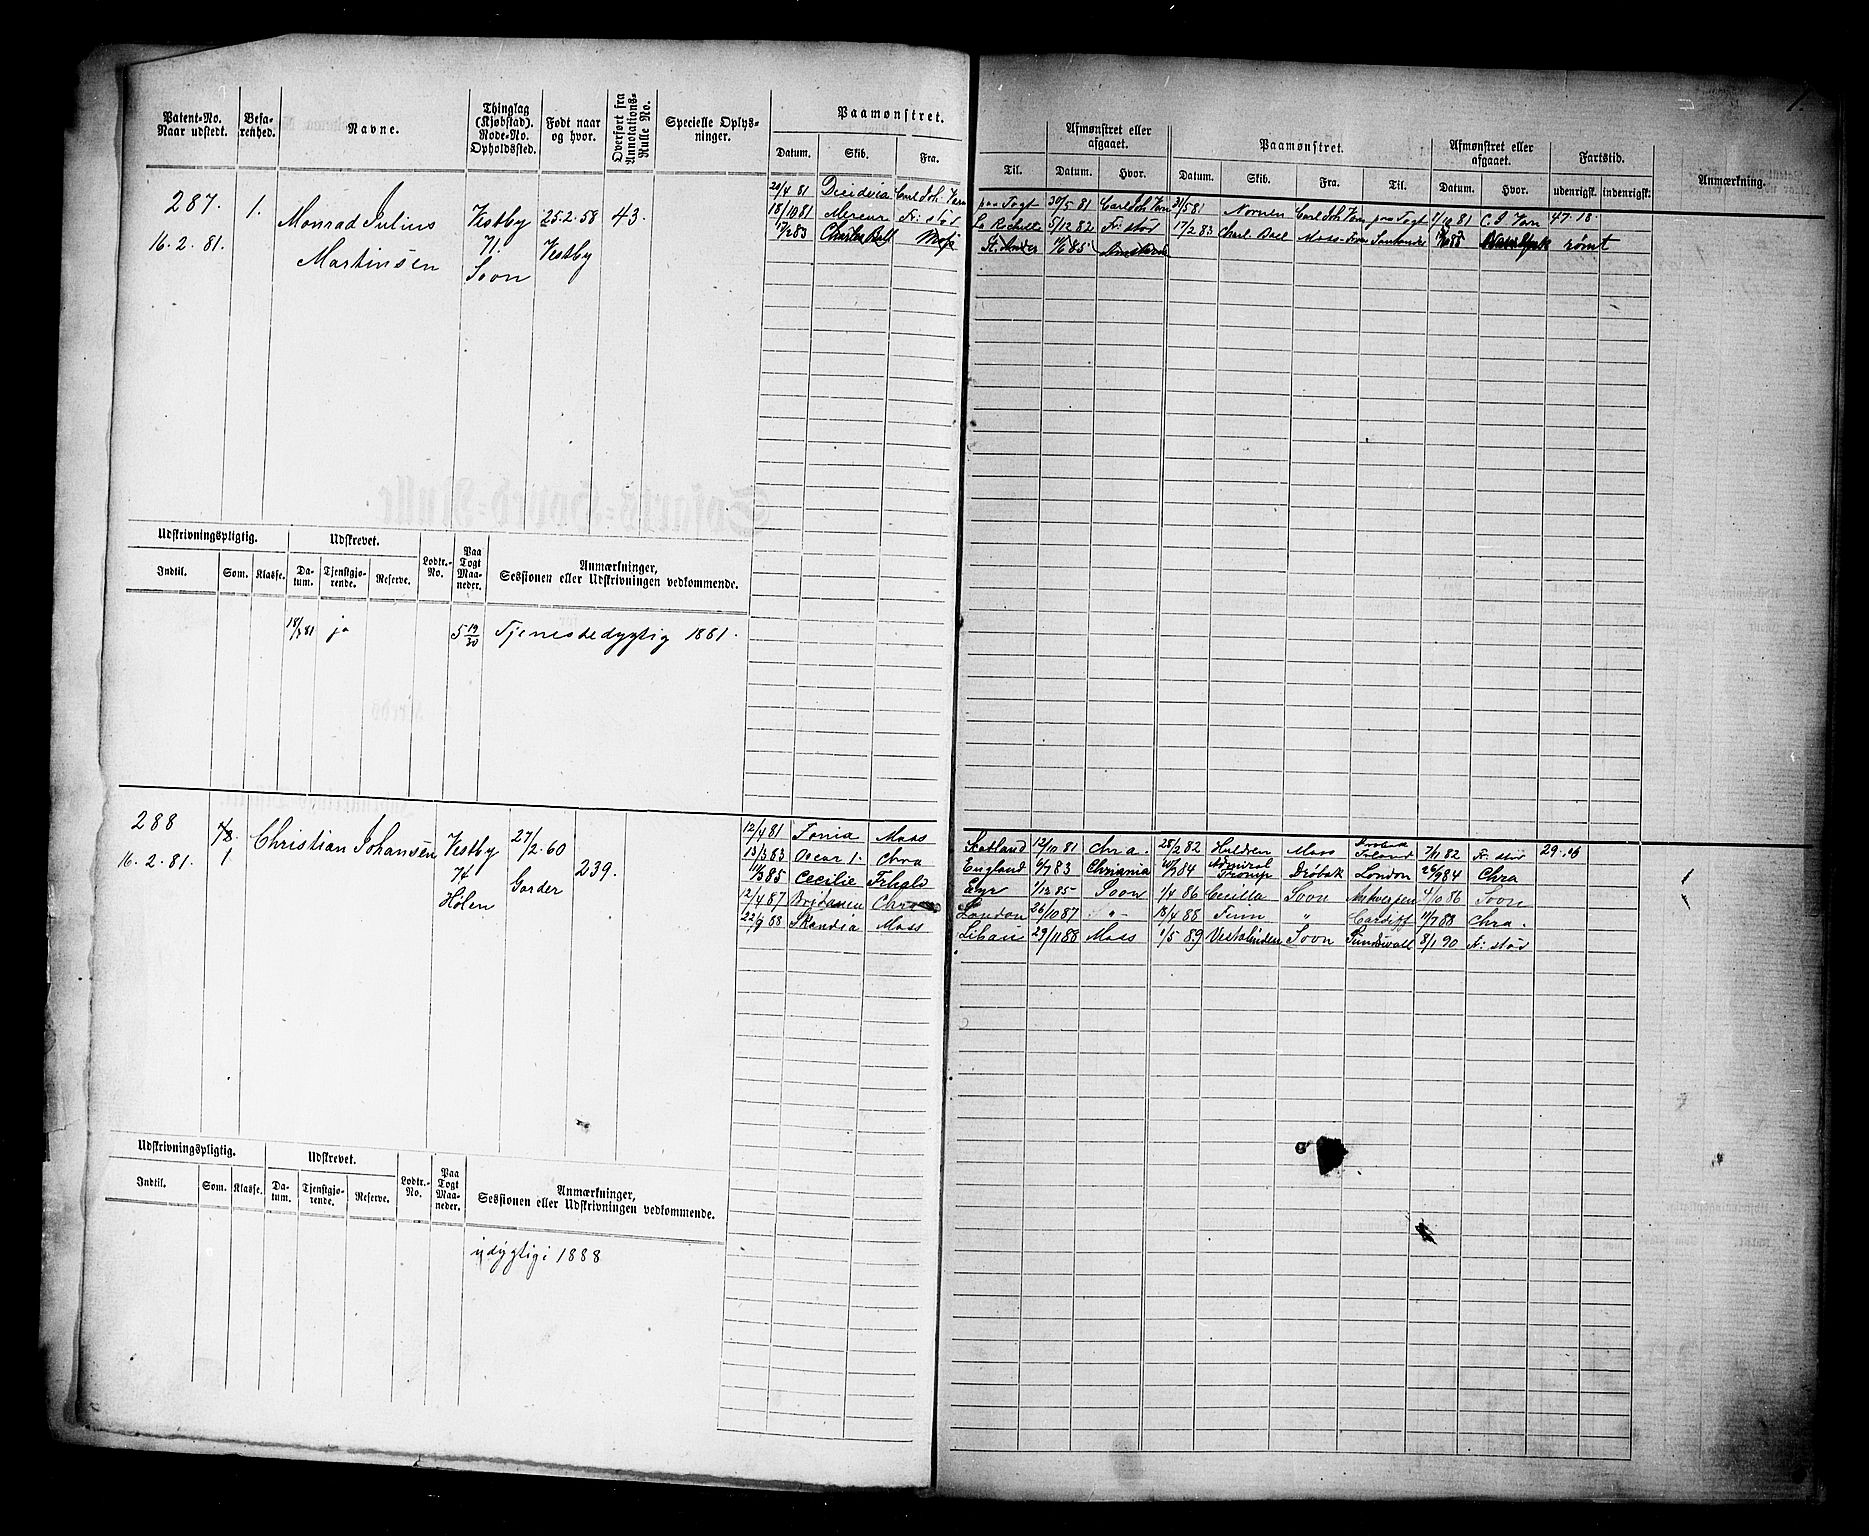 Patent-No. Naar udstedt.
Befarenhed.
Navne.
Thinglag (Kjøbstad). Rode-No. Opholdssted.
Født naar og hvor.
Overført fra Annotations-Rulle No.
Specielle Oplysninger.
Paamønstret.
Datum. Skib. Fra.
Til.
Afmønstret eller afgaaet.
Datum. Hvor.
Paamønstret.
Datum. Skib. Fra. Til.
Afmønstret eller afgaaet.
Datum. Hvor.
Fartstid.
udenrigsk. indenrigsk.
Anmærkning.
287. 1. Monrad Julius Vestby 25.2.58 43.
16.2.81. Martinsen 71. Vestby
Soon
20/4 81 Carl Joh. Værn paa Togt 30/5 81 Carl Joh Værn 31/5 81 Nornen Carl Joh Værn paa Togt 8/10 81 C J Værn 47-18.
18/10 81 Mercur Fr: stad La Rochelle 5/12 82 Fr: stad 17/2 83 Charl. Bull Moss Santander rømt
17/2 83 Charles Bull Moss St. Ander
Udskrivningspligtig. Udskrevet. Lodtr.-No. Paa Togt Maaneder. Anmærkninger, Sessionen eller Udskrivningen vedkommende.
Indtil. Som. Klasse. Datum. Tjenstgjørende. Reserve.
18/3 81 ja 5 19/30 Tjenestedygtig 1881.
288 Christian Johansen Vestby 27/2.60 239.
16.2.81. 1 74 Garder
Hølen
12/4 81 Tonia Moss Skotland 12/10 81 Chra. 28/2 82 Halden Moss 7/11 82 Fr: stad 29.26
13/3 83 Oscar 1. Chra England 6/7 83 Chriania 84 Admiral Tromp Drøbak London 84 Chra
85 Cecilie 1/12 85 Soon 1/4 86 Cecilia Soon Antwerpen 4/10 86 Soon
12/4 87 Chra London 26/10 87 " 18/4 88 " Cardiff 88 Chra.
22/9 88 Skandia Moss Libau 29/11 88 Moss 1/5 89 Vestalinden Soon Sundsvall 8/1 90 Fr: stad
Udskrivningspligtig. Udskrevet. Lodtr.-No. Paa Togt Maaneder. Anmærkninger, Sessionen eller Udskrivningen vedkommende.
Indtil. Som. Klasse. Datum. Tjenstgjørende. Reserve.
udygtig i 1888